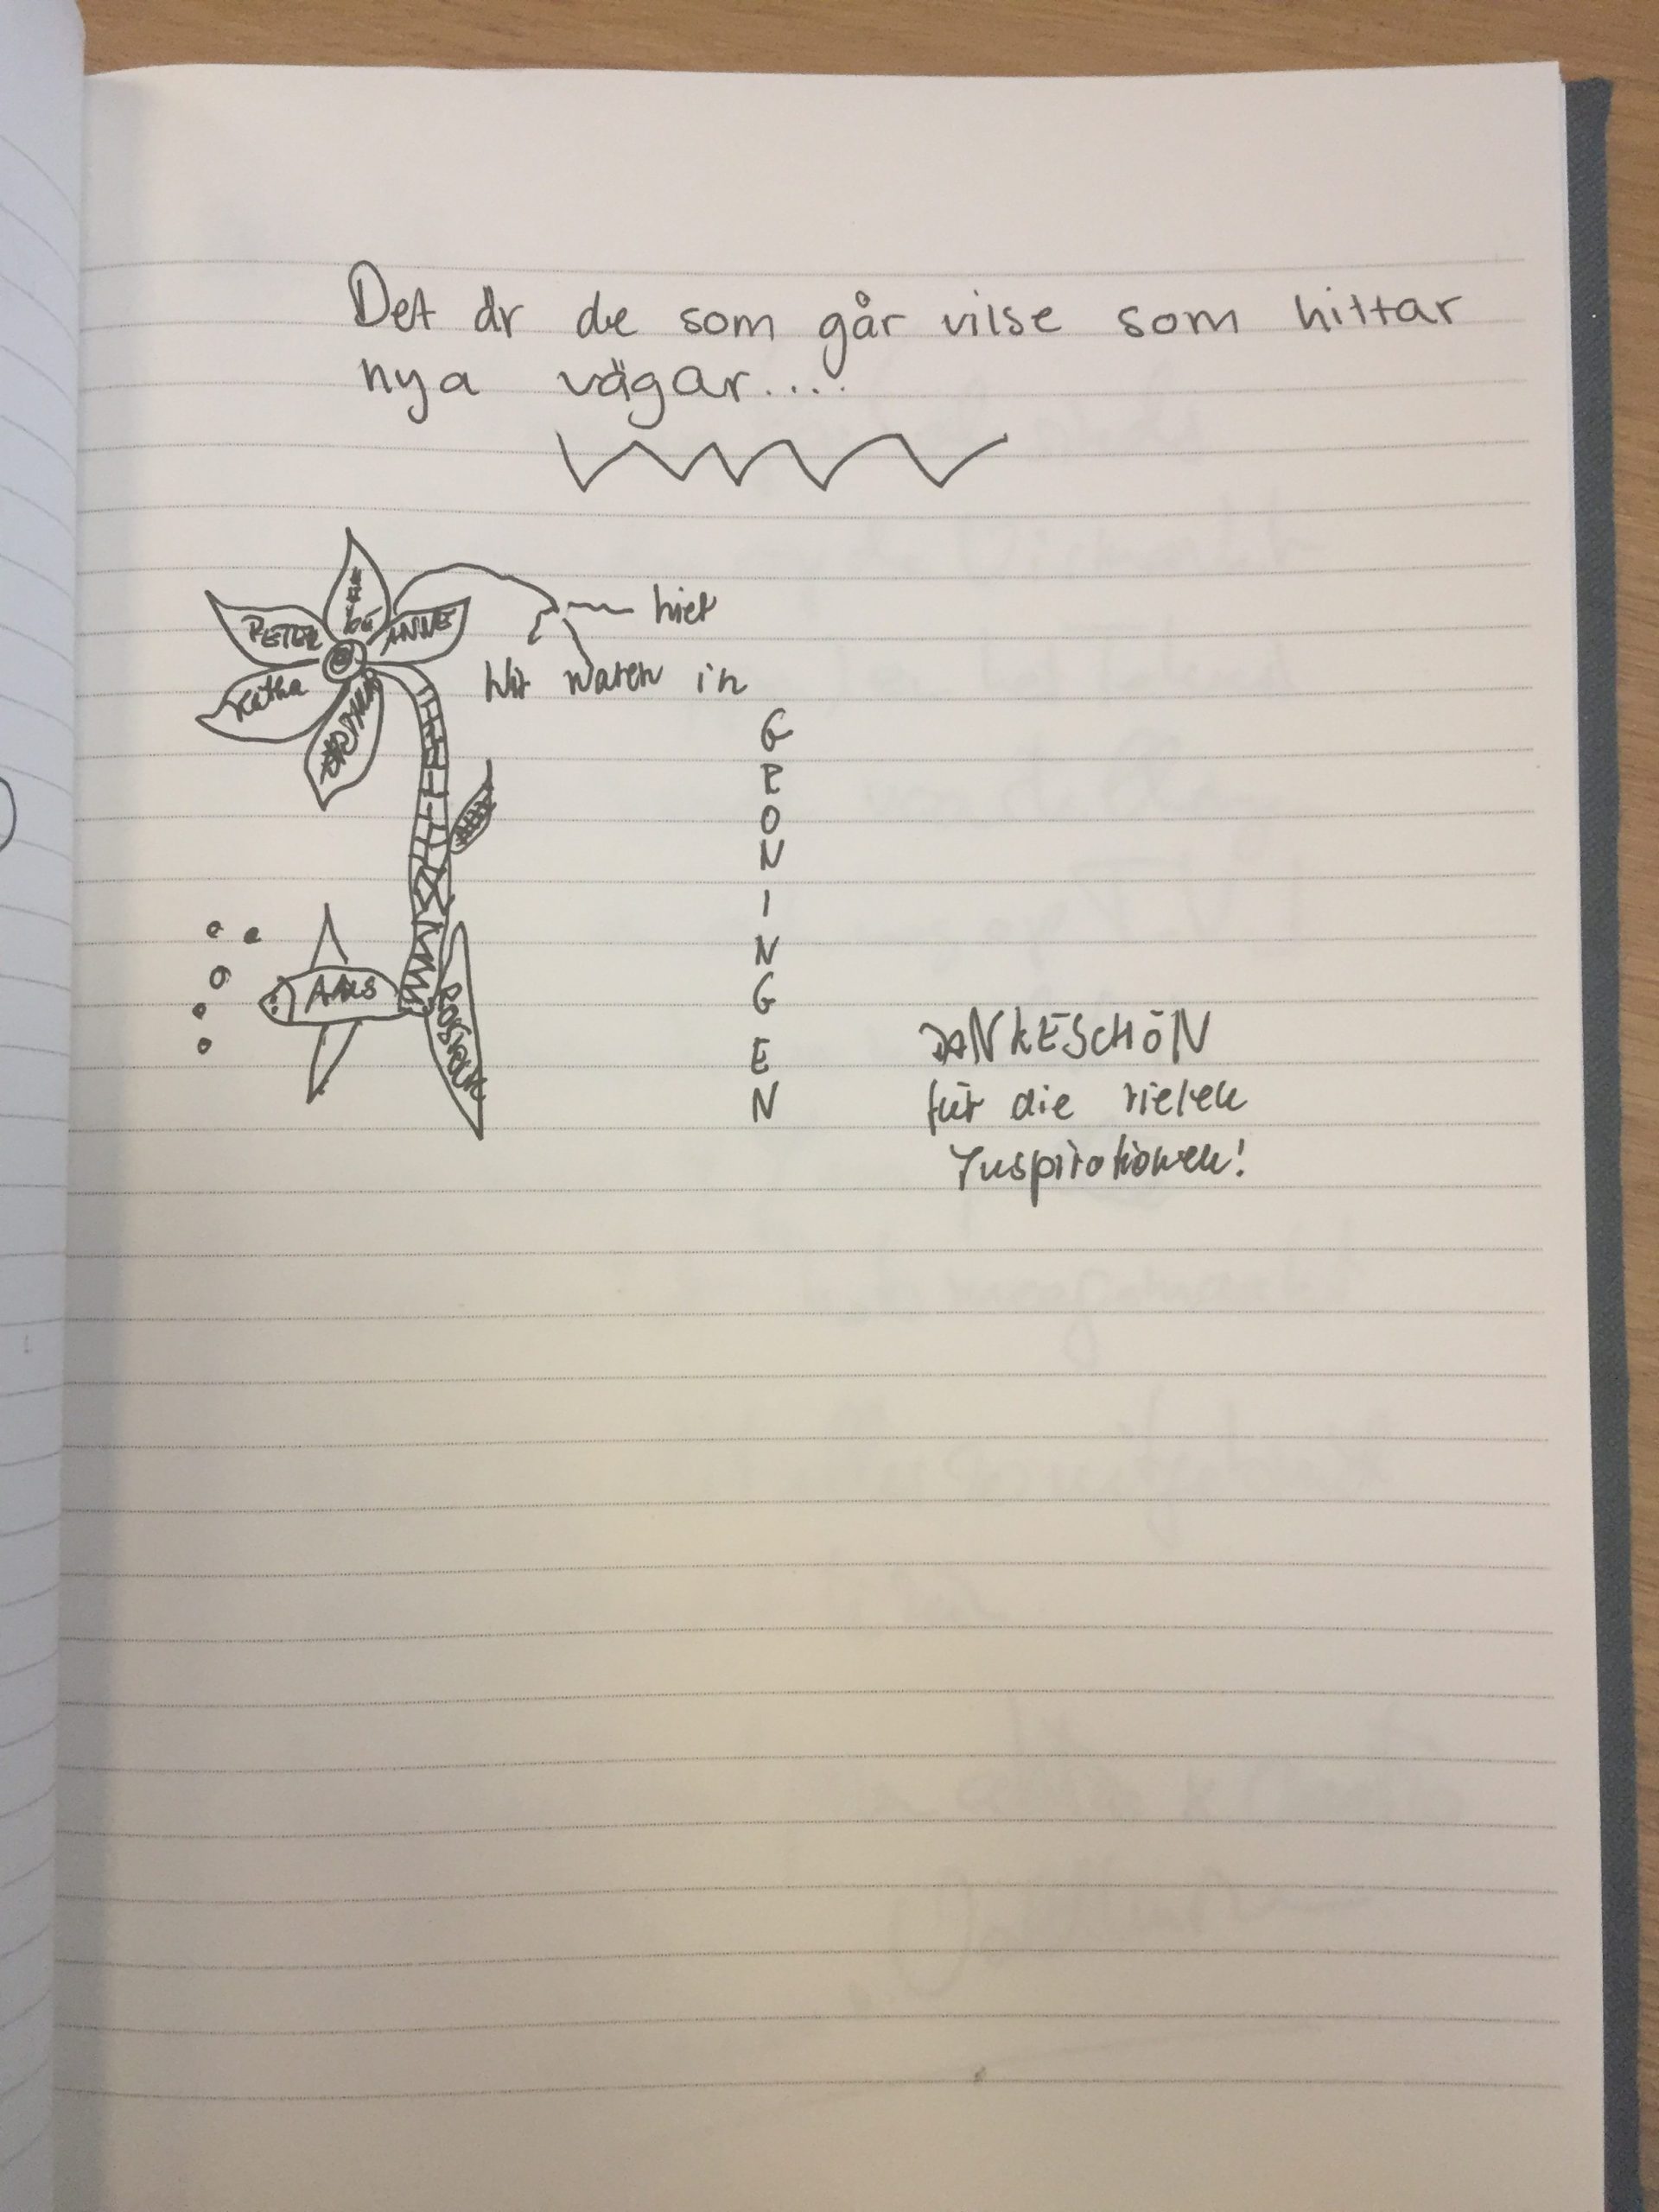 Det är de som går vilse som hittar
nya vägar....
PETER
ANNE
Katha
hier
Wir waren in
G
R
O
N
I
N
G
E
N
DANKESCHÖN
für die vielen
Inspirationen!